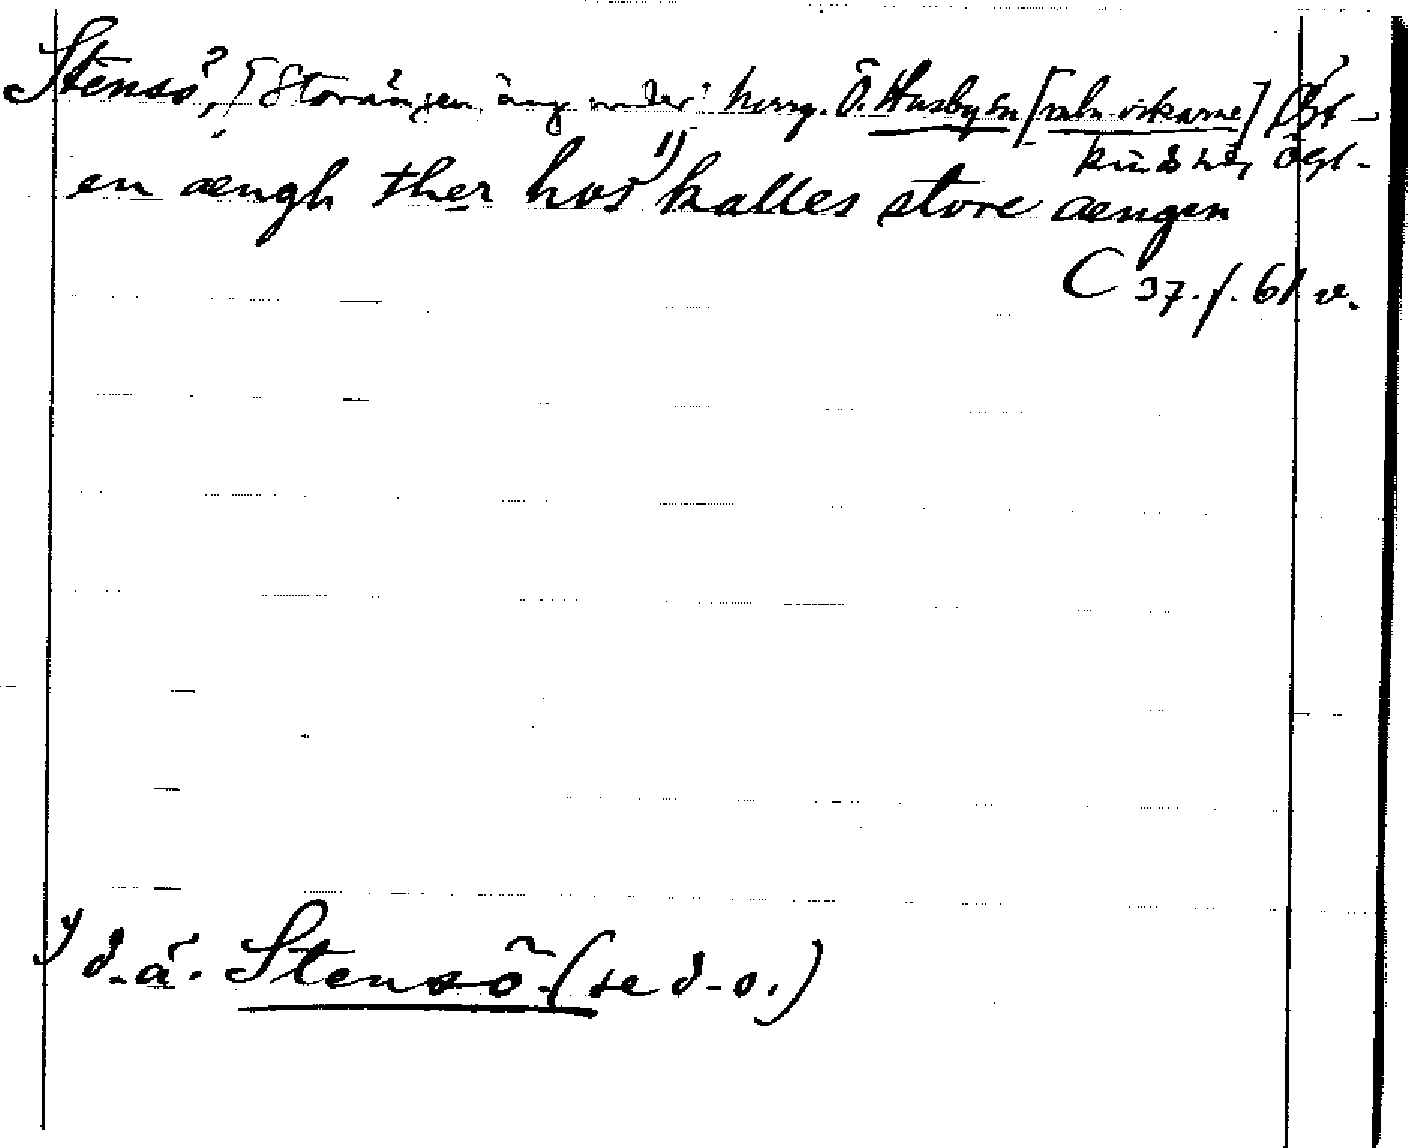 Stensö, [Storängen äng under herrg. Ö. Husby sn [vulu-virkarne] Öst-
kinds hd, Ögl.
en ængh ther hos¹⁾ kalles store ængen
C 37. f. 61 v.
¹⁾ d.ä. Stensö (se d.o.)